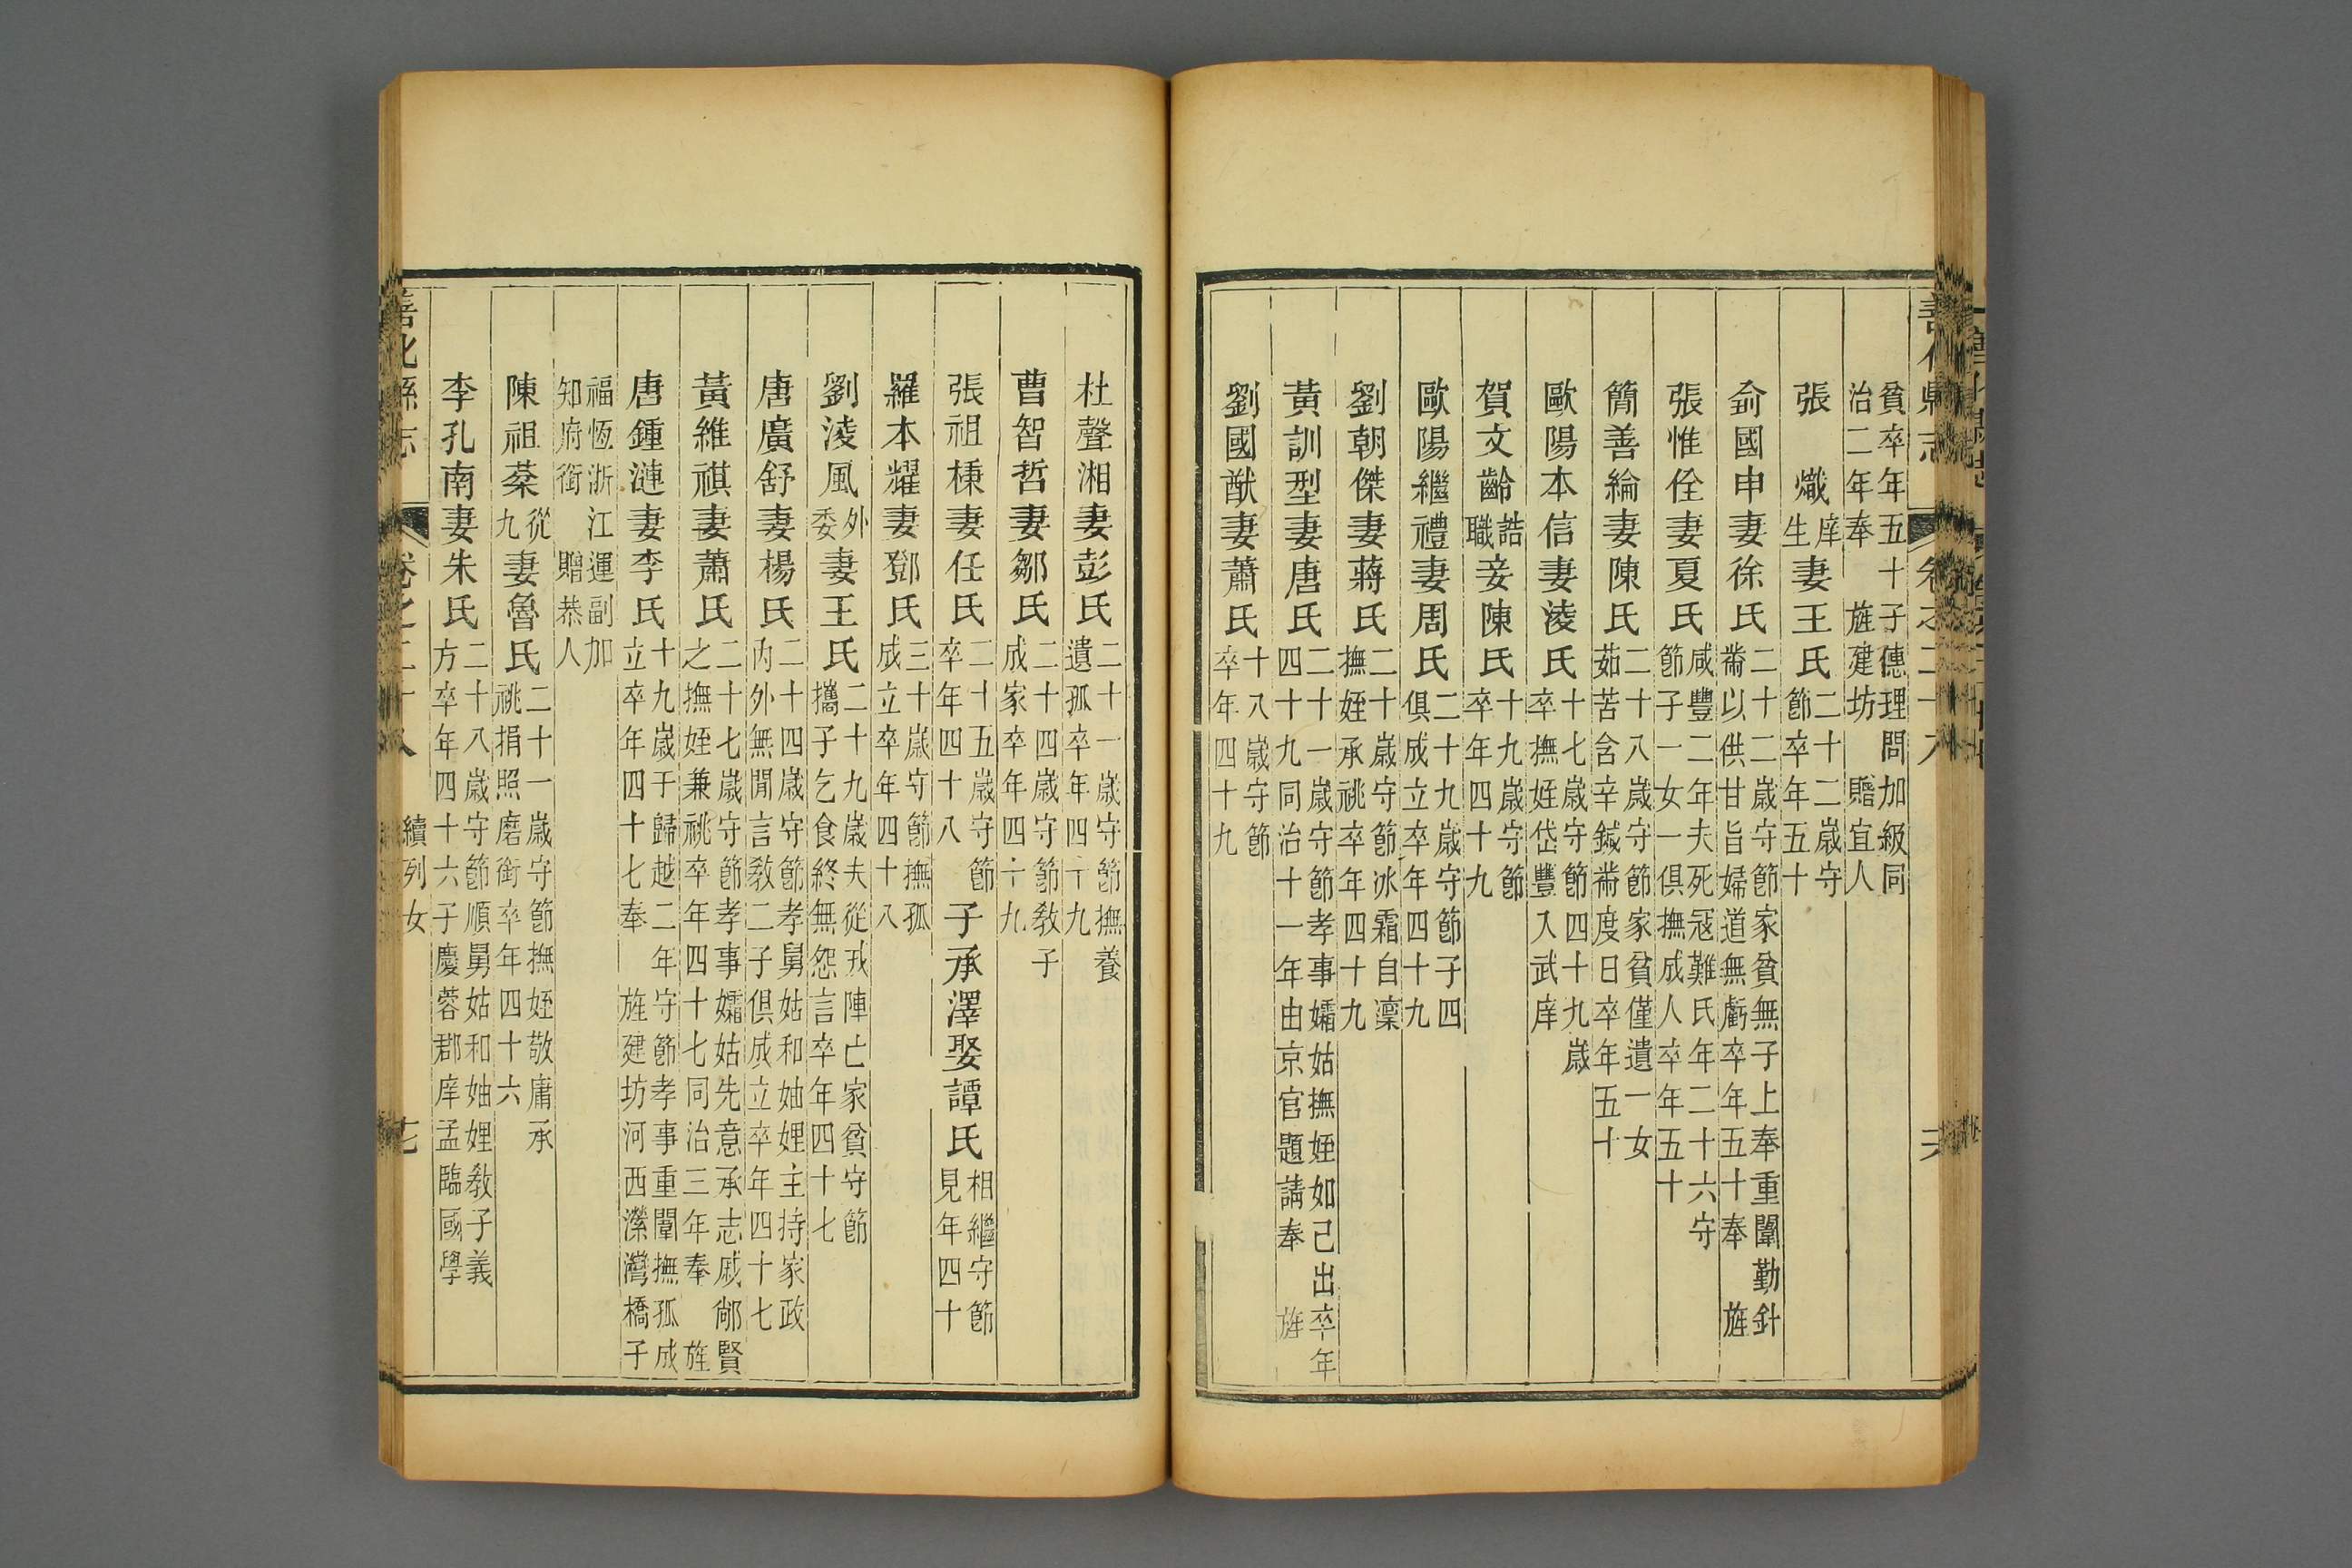 善化縣志
卷之二十八
貧卒年五十子僡理問加級同
治二年奉 旌建坊 贈宜人
張 熾庠生妻王氏二十二歲守
節卒年五十
俞國申妻徐氏二十二歲守節家貧無子上奉重闈勤針
黹以供甘旨婦道無虧卒年五十奉 旌
張惟佺妻夏氏咸豐二年夫死冦難氏年二十六守
節子一女一俱撫成人卒年五十
簡善綸妻陳氏二十八歲守節家貧僅遺一女
茹苦含辛鍼黹度日卒年五十
歐陽本信妻淩氏十七歲守節四十九歲
卒撫姪岱豐入武庠
賀文齡誥職妾陳氏十九歲守節
卒年四十九
歐陽繼禮妻周氏二十九歲守節子四
俱成立卒年四十九
劉朝傑妻蔣氏二十歲守節冰霜自凜
撫姪承祧卒年四十九
黃訓型妻唐氏二十一歲守節孝事孀姑撫姪如己出卒年
四十九同治十一年由京官題請奉 旌
劉國猷妻蕭氏十八歲守節
卒年四十九
杜聲湘妻彭氏二十一歲守節撫養
遺孤卒年四十九
曹智哲妻鄒氏二十四歲守節敎子
成家卒年四十九
張祖棟妻任氏二十五歲守節
卒年四十八
子承澤娶譚氏相繼守節
見年四十
羅本耀妻鄧氏三十歲守節撫孤
成立卒年四十八
劉淩風外委妻王氏二十九歲夫從戎陣亡家貧守節
攜子乞食終無怨言卒年四十七
唐廣舒妻楊氏二十四歲守節孝舅姑和妯娌主持家政
內外無閒言敎二子俱成立卒年四十七
黃維祺妻蕭氏二十七歲守節孝事孀姑先意承志戚鄰賢
之撫姪兼祧卒年四十七同治三年奉 旌
唐鍾漣妻李氏十九歲于歸越二年守節孝事重闈撫孤成
立卒年四十七奉 旌建坊河西濚灣橋子
福恆浙江運副加
知府銜 贈恭人
陳祖棻從九妻魯氏二十一歲守節撫姪敬庸承
祧捐照磨銜卒年四十六
李孔南妻朱氏二十八歲守節順舅姑和妯娌敎子義
方卒年四十六子慶蓉郡庠孟臨國學
善化縣志
卷之二十八
續列女